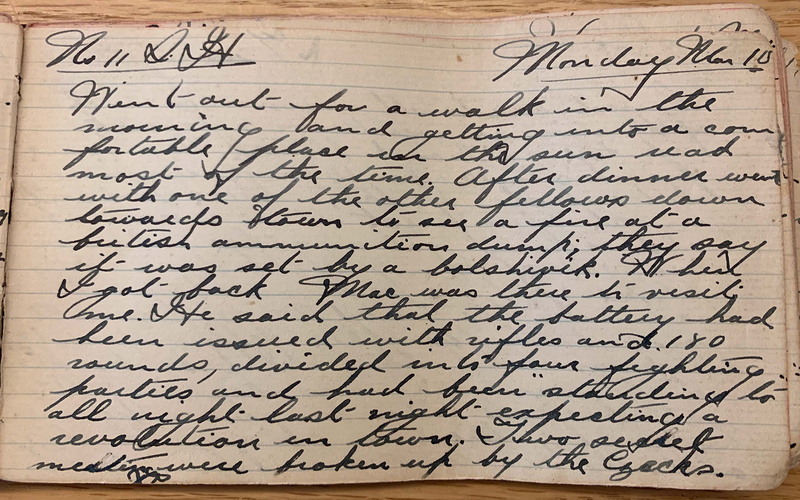 No 11 S. H Monday Mar 10
Went out for a walk in the
morning and getting into a com
fortable place in the sun read
most of the time. After dinner went
with one of the other fellows down
towards town to see a fire at a
british ammunition dump; they say
it was set by a bolshivik. When
I got back Mac was there to visit
me. He said that the battery had
been issued with rifles and 180
rounds, divided into four fighting
parties and had been "standing to
all night last night expecting a
revolution in town. Two secret
meetings were broken up by the Czecks.